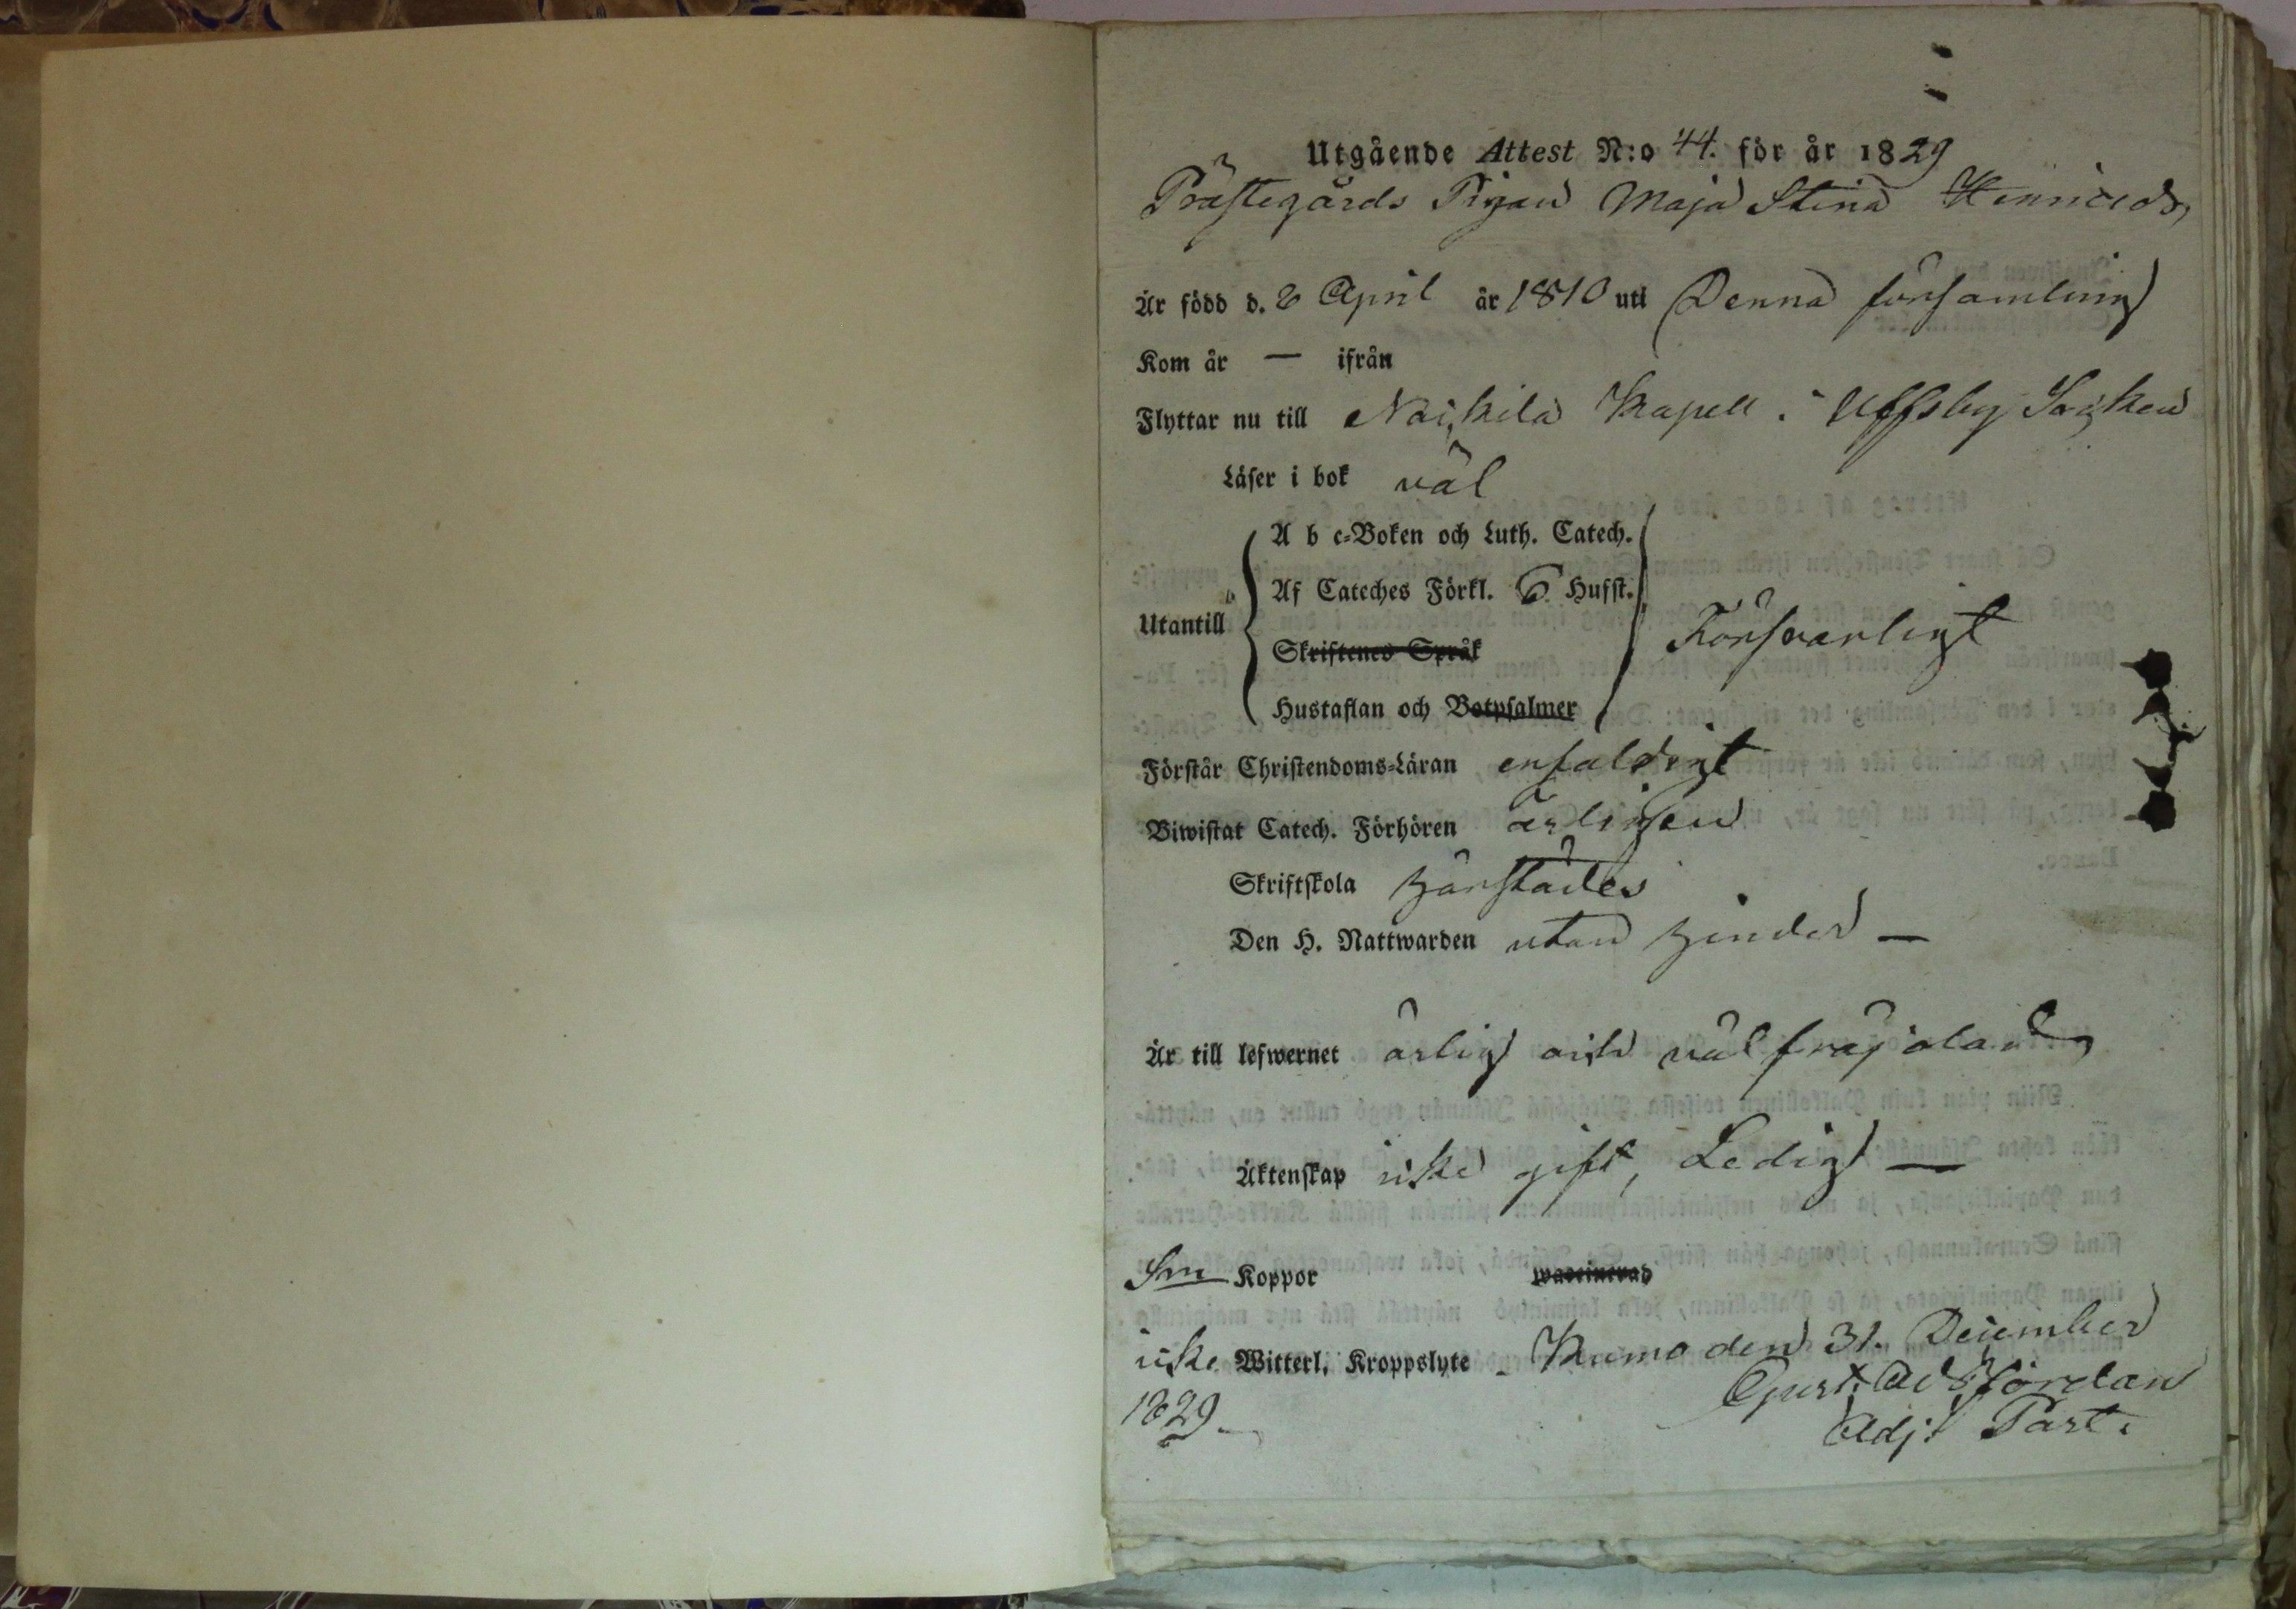 Utgående Attest N:o 44. för år 1829
Prästegårds Pigan Maja Stina Henricsdr,
Är född d. 8 April år 1810 uti Denna församling
Kom år — ifrån
Flyttar nu till Nakkila Kapell i Ulfsby Sochen
Läser i bok väl
A b c-Boken och Luth. Catech.
Af Cateches Förkl. 6 Hufst.
Utantill Försvarligt
Skriftenes Språk
Hustaflan och Botpsalmer
Förstår Christendoms-Läran enfaldigt
Biwistat Catech. Förhören årligen
Skriftskola härstädes
Den H. Nattwarden utan hinder —
Är till lefwernet ärlig och välfräjdad
Äktenskap icke gift, Ledig —
Koppor waccinerad
icke Witterl. Kroppslyte - Kumo den 31. December
1829.
Gust. Ad.
Adj: Past.